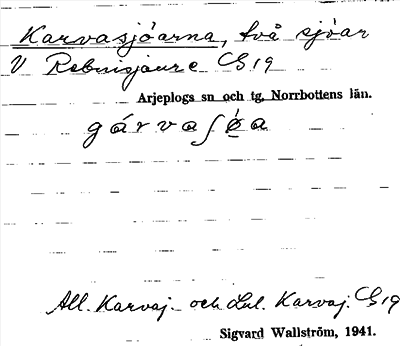 Karvasjöarna, två sjöar
V Rebnisjaure C819
Arjeplogs sn och tg, Norrbottens län.
gárvaʃǿa
All. Karvaj. och Lul. Karvaj. C819
Sigvard Wallström, 1941.